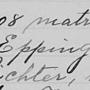 08 matr
Epping
ichter,